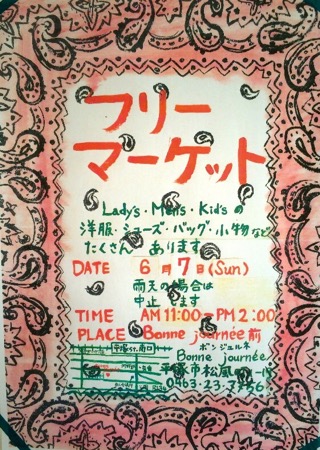 フリー
マーケット
Lady's・Men's・Kid'sの
洋服・シューズ・バッグ・小物など
たくさん あります
DATE 6月7日(Sun)
雨天の場合は
中止します
TIME AM 11:00~PM 2:00
PLACE Bonne journée前
ボンジュルネ
Bonne journée
平塚市松風町
0463-23-7756
平塚st.南口